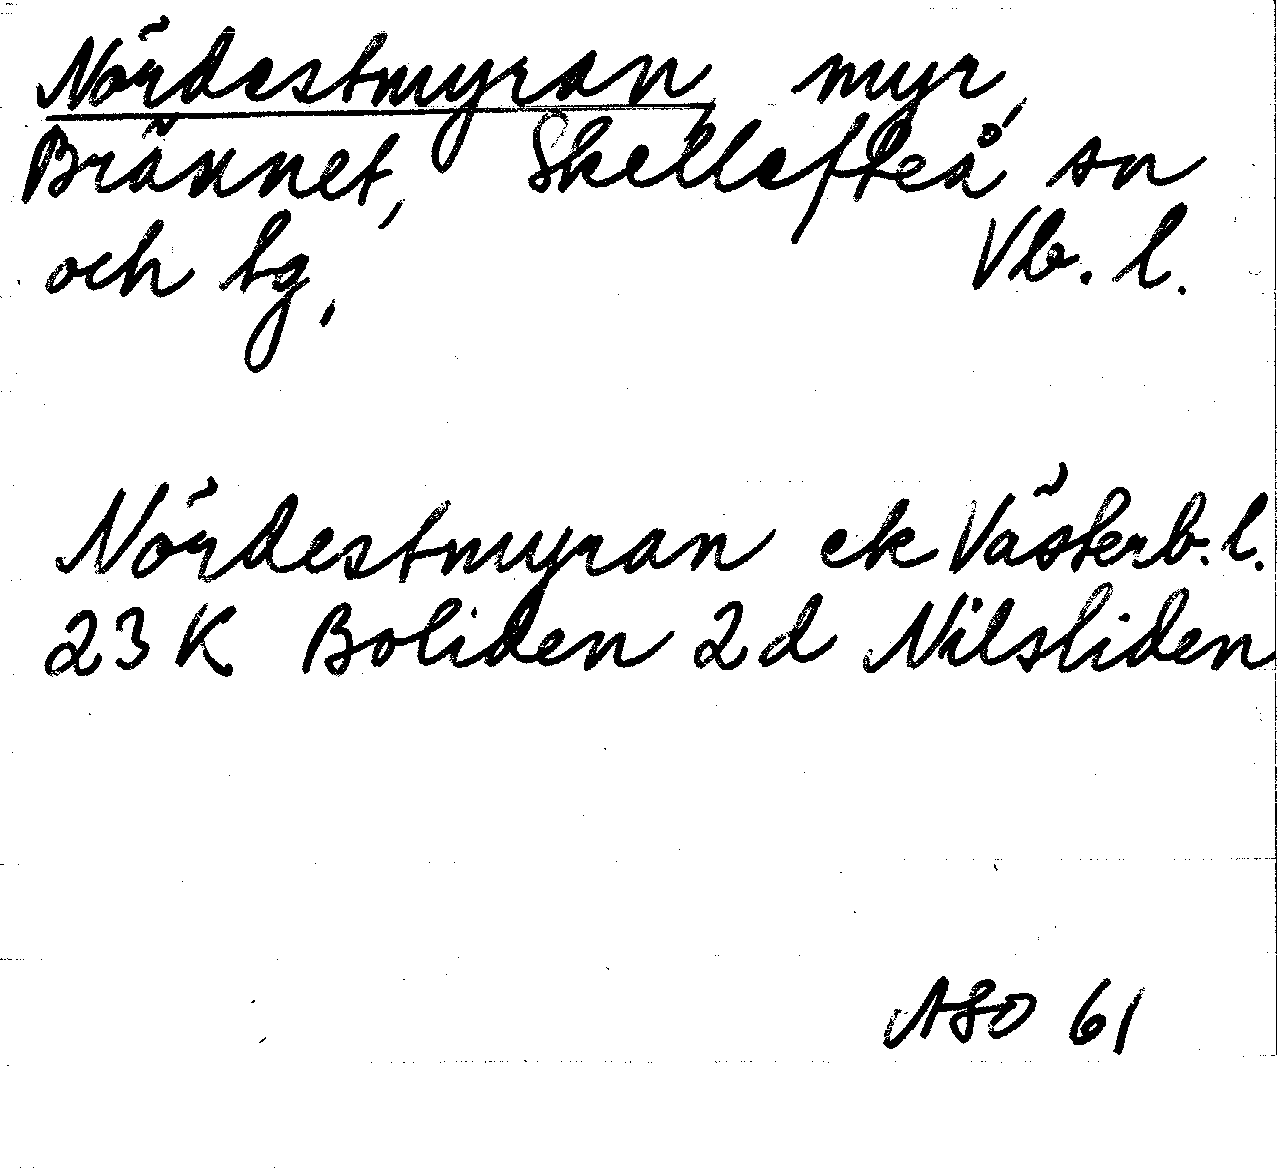 Nördestmyran, myr,
Brännet, Skellefteå sn
och tg, Vb. l.
Nördestmyran ek Västerb. l.
23 K Boliden 2 d Nilsliden
ASO 61